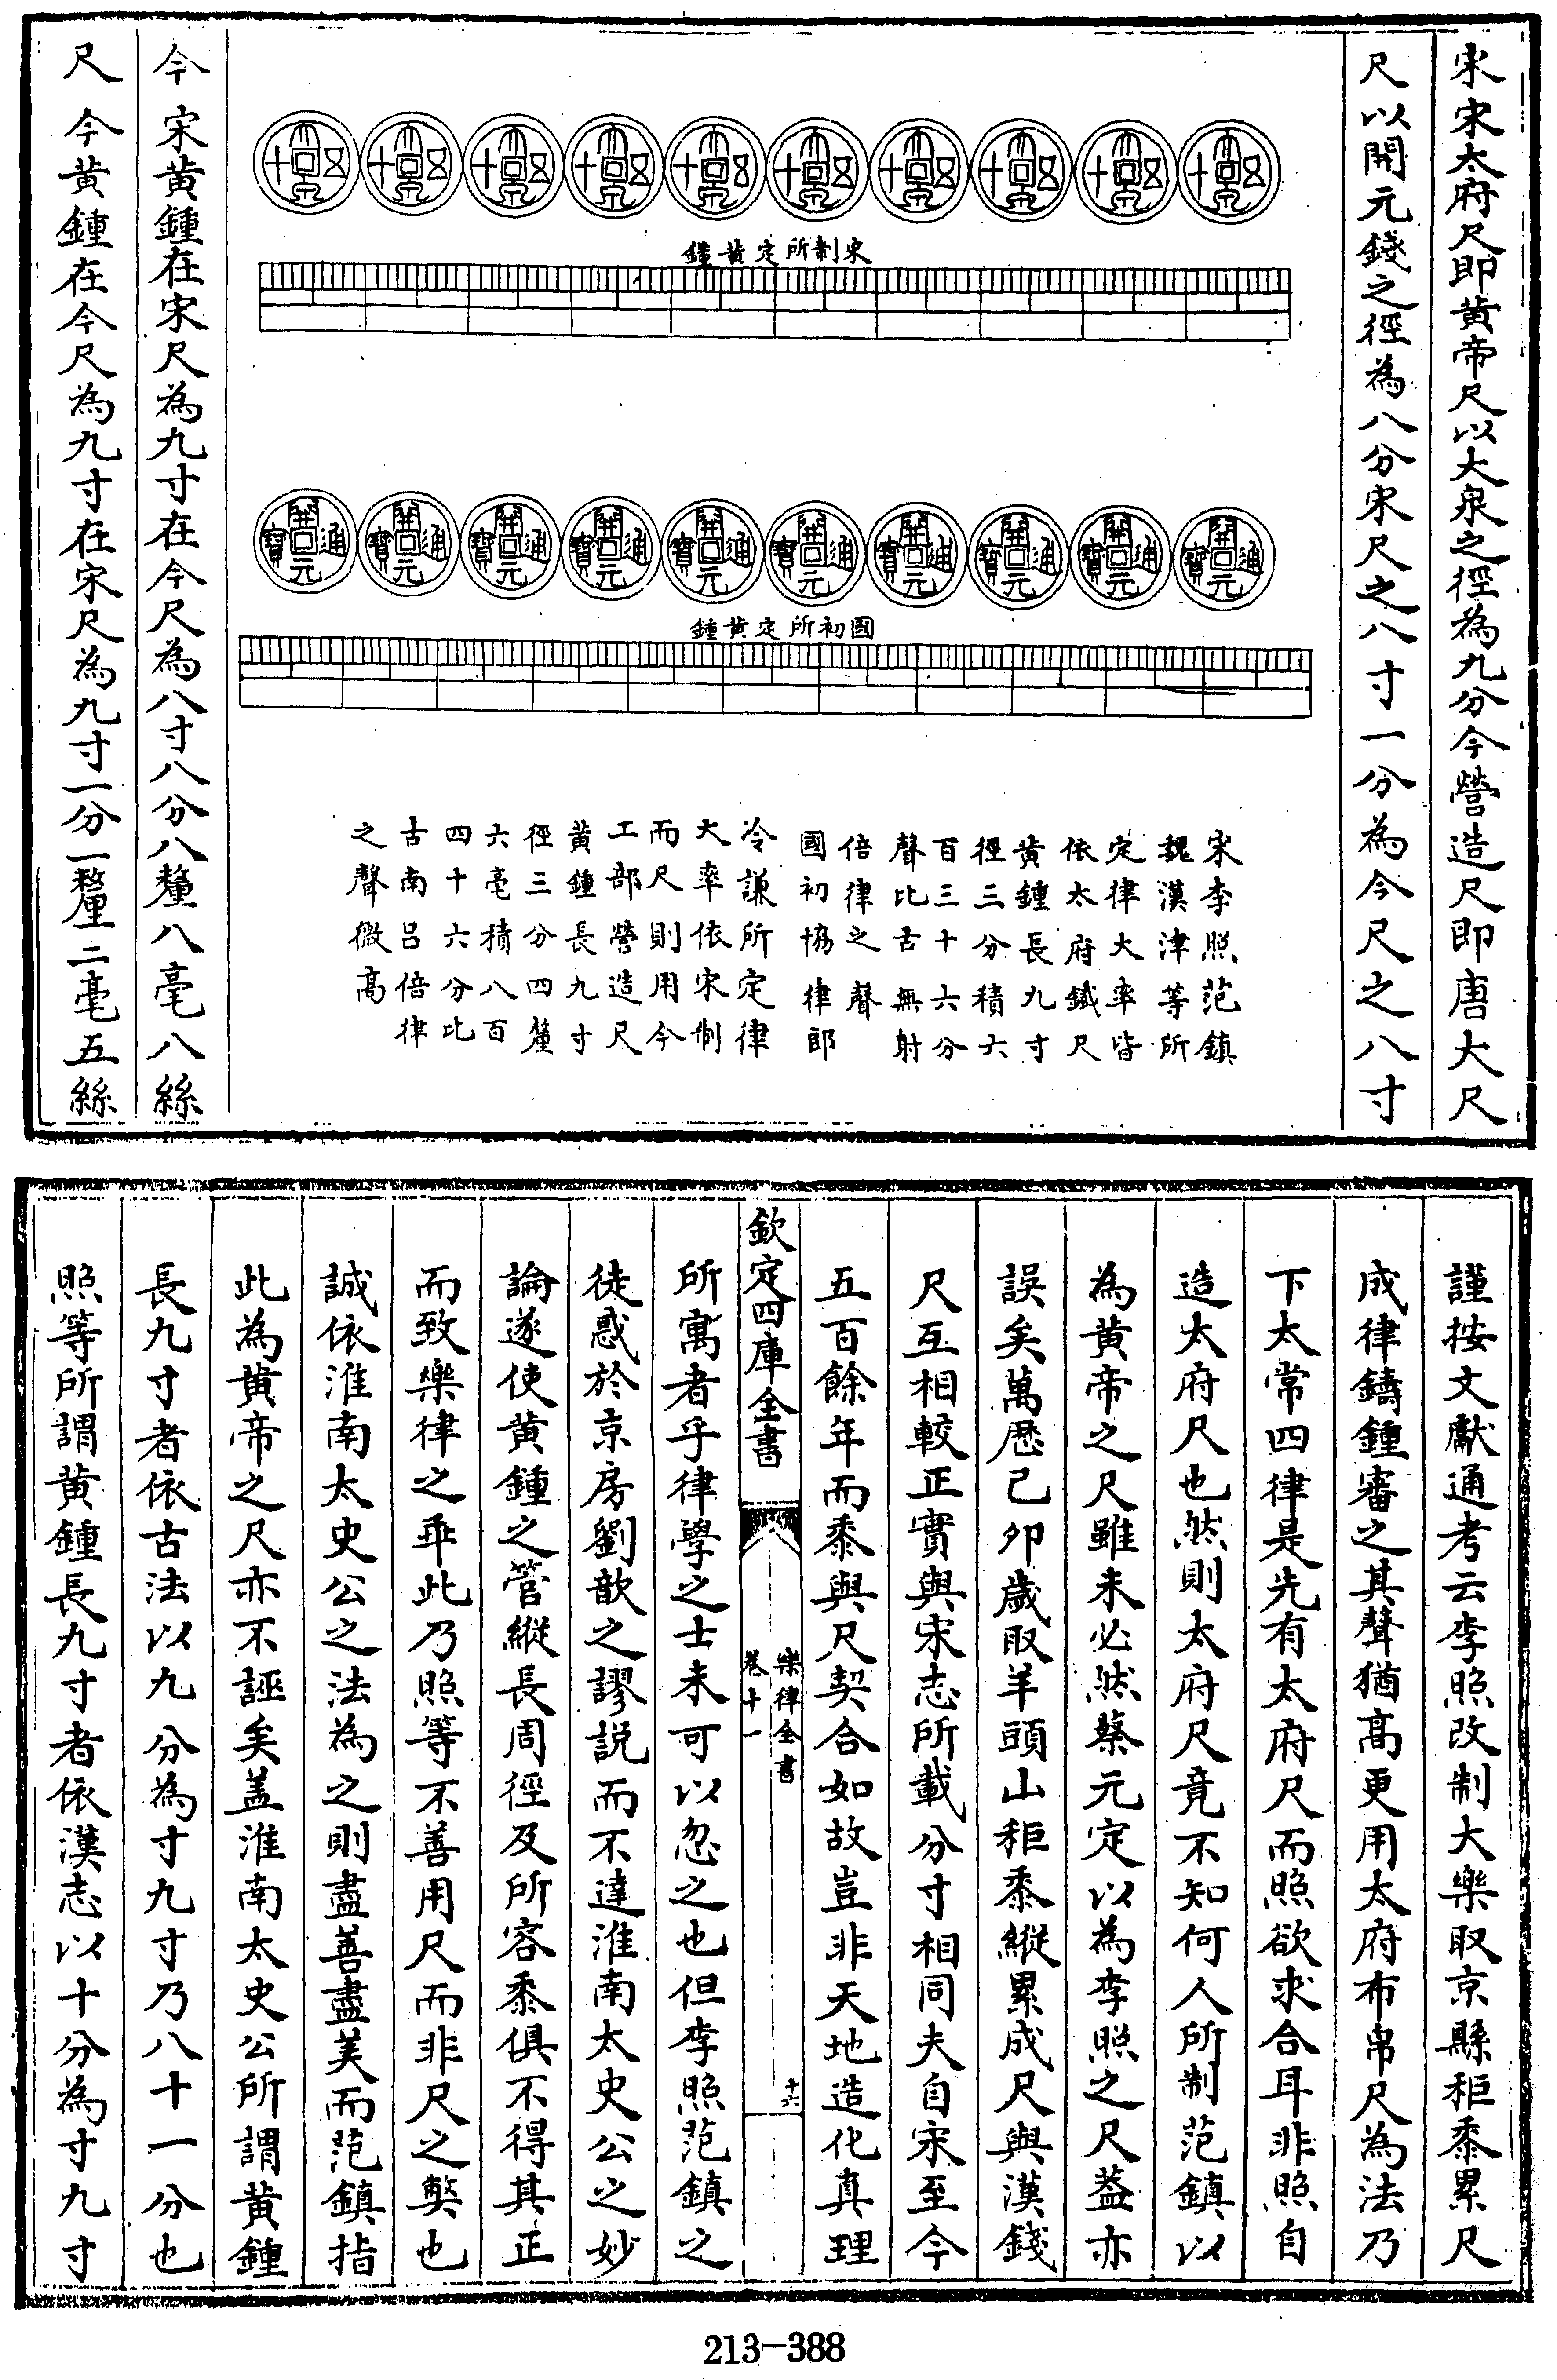 宋宋太府尺即黃帝尺以大泉之徑為九分今營造尺即唐大尺
尺以開元錢之徑為八分宋尺之八寸一分為今尺之八寸
大泉五十
大泉五十
大泉五十
大泉五十
大泉五十
大泉五十
大泉五十
大泉五十
大泉五十
大泉五十
宋制所定黃鍾
開元通寶
開元通寶
開元通寶
開元通寶
開元通寶
開元通寶
開元通寶
開元通寶
開元通寶
開元通寶
國初所定黃鍾
宋李照范鎮
魏漢津等所
定律大率皆
依太府鐵尺
黃鍾長九寸
徑三分積六
百三十六分
聲比古無射
倍律之聲
國初協律郎
冷謙所定律
大率依宋制
而尺則用今
工部營造尺
黃鍾長九寸
徑三分四釐
六毫積八百
四十六分比
古南呂倍律
之聲微高
今宋黃鍾在宋尺為九寸在今尺為八寸八分八釐八毫八絲
尺今黃鍾在今尺為九寸在宋尺為九寸一分一釐二毫五絲
謹按文獻通考云李照改制大樂取京縣秬黍累尺
成律鑄鍾審之其聲猶高更用太府布帛尺為法乃
下太常四律是先有太府尺而照欲求合耳非照自
造太府尺也然則太府尺竟不知何人所制范鎮以
為黃帝之尺雖未必然蔡元定以為李照之尺葢亦
誤矣萬歷己卯歲取羊頭山秬黍縱累成尺與漢錢
尺互相較正實與宋志所載分寸相同夫自宋至今
五百餘年而黍與尺契合如故豈非天地造化真理
欽定四庫全書
樂律全書
卷十一
十六
所寓者乎律學之士未可以忽之也但李照范鎮之
徒惑於京房劉歆之謬說而不達淮南太史公之妙
論遂使黃鍾之管縱長周徑及所容黍俱不得其正
而致樂律之乖此乃照等不善用尺而非尺之獘也
誠依淮南太史公之法為之則盡善盡美而范鎮指
此為黃帝之尺亦不誣矣盖淮南太史公所謂黃鍾
長九寸者依古法以九分為寸九寸乃八十一分也
照等所謂黃鍾長九寸者依漢志以十分為寸九寸
213-388